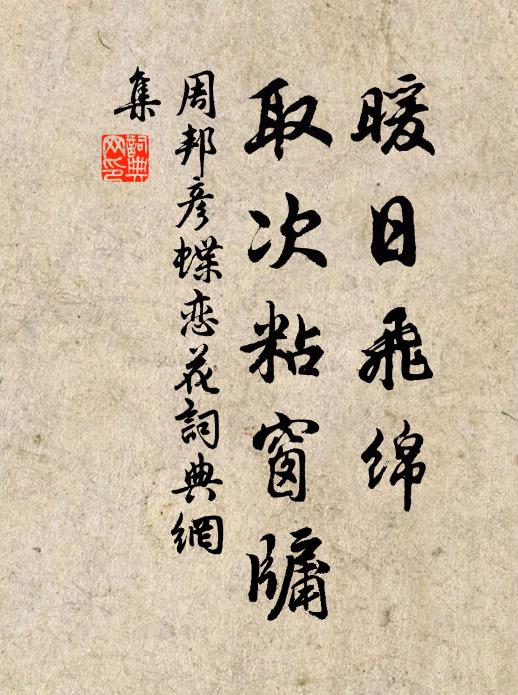 暖日飛綿
取次粘窗牖
周邦彥蝶恋花詞典網
集
詞典
网印